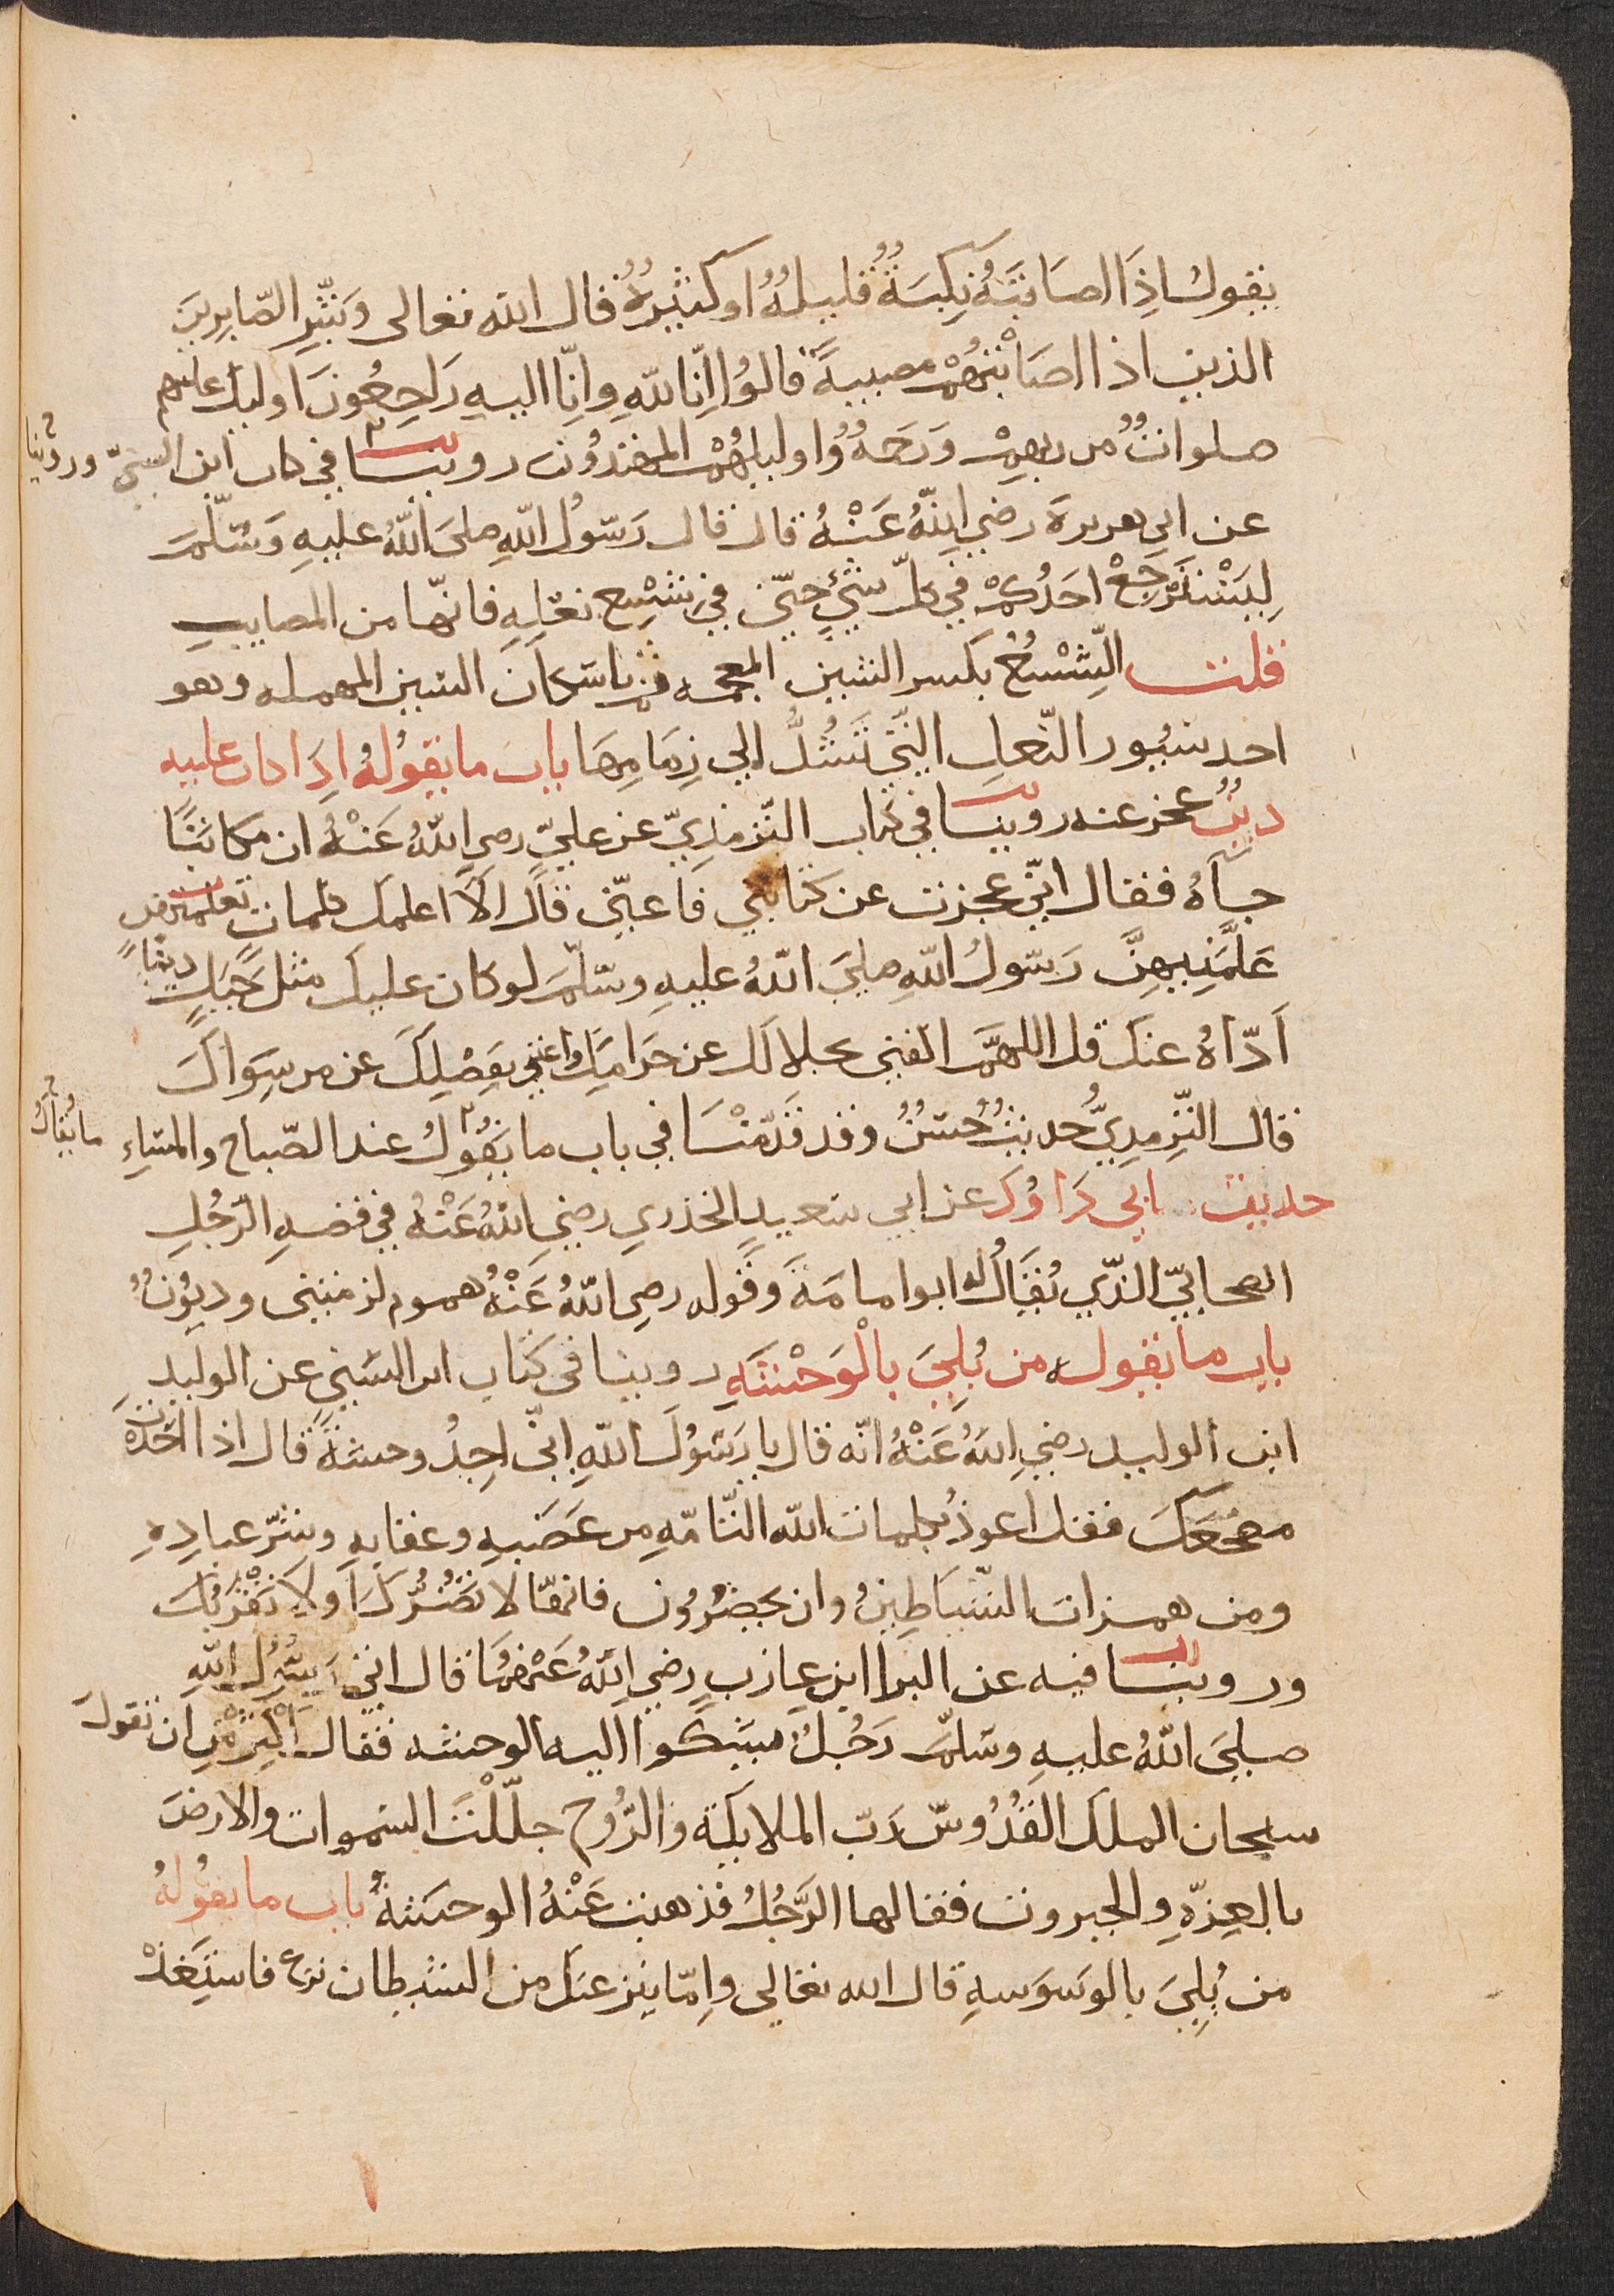 يقول اذا اصابته نكبة قليلة او كثيرة قال الله تعالى وبشر الصابرين
الذين اذا اصابتهم مصيبة قالوا انا لله وانا اليه راجعون اوليك عليهم
صلوات من ربهم ورحمة واوليك هم المهتدون روينا في كتاب ابن السني وروينا
عن ابي هريرة رضي الله عنه قال قال رسول الله صلى الله عليه وسلم
ليسترجع احدكم في كل شيء حتى في شسع نعله فانها من المصايب
قلت الشسع بكسر الشين المعجمه ثم باسكان السين المهمله وهو
احد سيور النعل التي تشد الي زمامها باب ما يقوله اذا كان عليه
دين عجز عنه روينا في كتاب الترمذي عن علي رضي الله عنه ان مكاتبا
جآه فقال اني عجزت عن كتابتي فاعني قال الا اعلمك كلمات
علمنيهن رسول الله صلى الله عليه وسلم لو كان عليك مثل جبل دينا
اداه عنك قل اللهم اكفني بحلالك عن حرامك واغنني بفضلك عن من سواك
قال الترمذي حديث حسن وقد قدمنا في باب ما يقول عند الصباح والمساء ما يقال
حديث ابي داود عن ابي سعيد الخذري رضي الله عنه في قصه الرجل
الصحابي الذي يقال له ابوا مامة وقوله رضي الله عنه هموم لزمتني وديون
باب ما يقوله من بلي بالوحشة روينا في كتاب ابن السني عن الوليد
ابن الوليد رضي الله عنه انه قال يا رسول الله اني اجد وحشة قال اذا اخذت
مضجعك فقل اعوذ بكلمات الله التامه من غضبه وعقابه وشر عباده
ومن همزات الشياطين وان يحضرون فانها لا تضرك ولا تقربك
وروينا فيه عن البرا ابن عازب رضي الله عنهما قال اتي رسول الله
صلى الله عليه وسلم رجل يشكوا اليه الوحشه فقال اكثر من ان تقول
سبحان الملك القدوس رب الملايكة والروح جللت السموات والارض
بالعزه والجبروت فقالها الرجل فذهبت عنه الوحشة باب ما يقوله
من بلي بالوسوسه قال الله تعالى واما ينزغنك من الشيطان نزغ فاستعذ